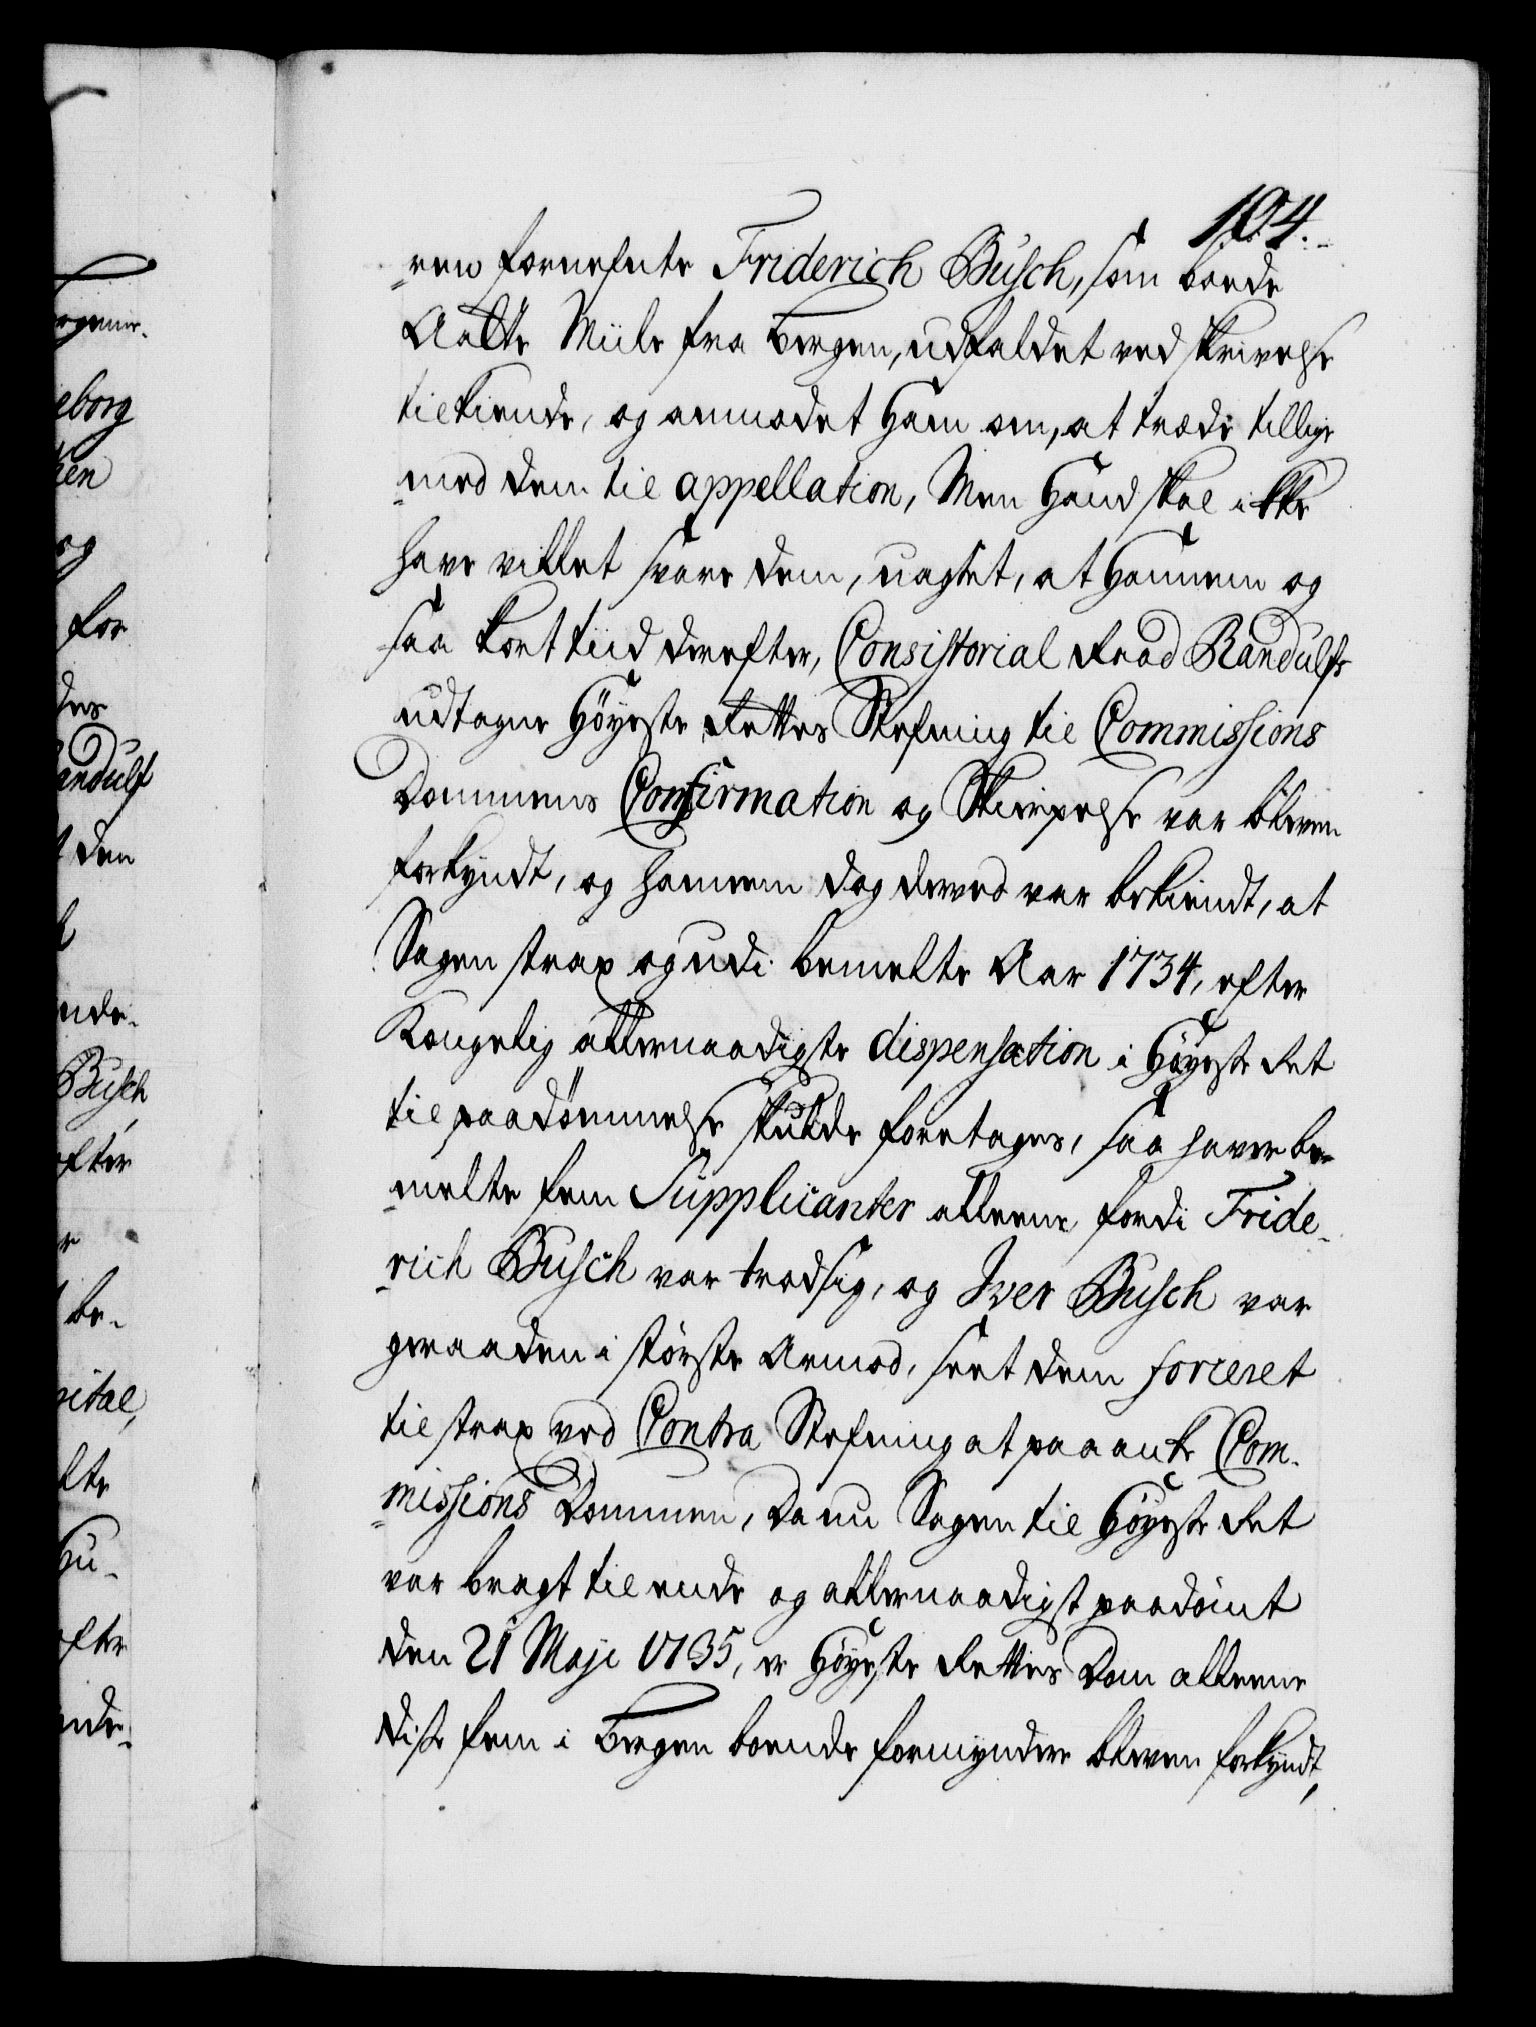 104.
ren fornefnte Friderich Busch, som boede
Aatte Miile fra Bergen, udfaldet ved skrivelse
tilkiende, og anmodet Ham om, at træde tillige
med dem til appellation, Men Hand skal ikke
have villet svare dem, uagtet, at Hannem og
saa kort tiid derefter, Consistorial Raad Randulfs
udtagne Höyeste Rettes Stefning til Commissions
Dommens Confirmation og Skierpelse var bleven
forkyndt, og hannem dog derved var bekiendt, at
Sagen strax og udi bemelte Aar 1734, efter
Kongelig allernaadigste dispensation i Höyeste Ret
til paadömmelse skulde foretages, saa haver be-
melte fem Supplicanter alleene, fordi Fride-
rich Busch var trodsig, og Iver Busch var
geraaden i störste Armod, seet dem forceret
til strax ved Contra Stefning at paaanke Com-
missions Dommen, Da nu Sagen til Höyeste Ret
var bragt til ende og allernaadigst paadömt
den 21 Maji 1735, er Höyeste Rettes Dom alleene
disse fem i Bergen boende formyndere bleven forkyndt,
eborg
den
og
for
andulf
den
Busch
efter
be-
pital,